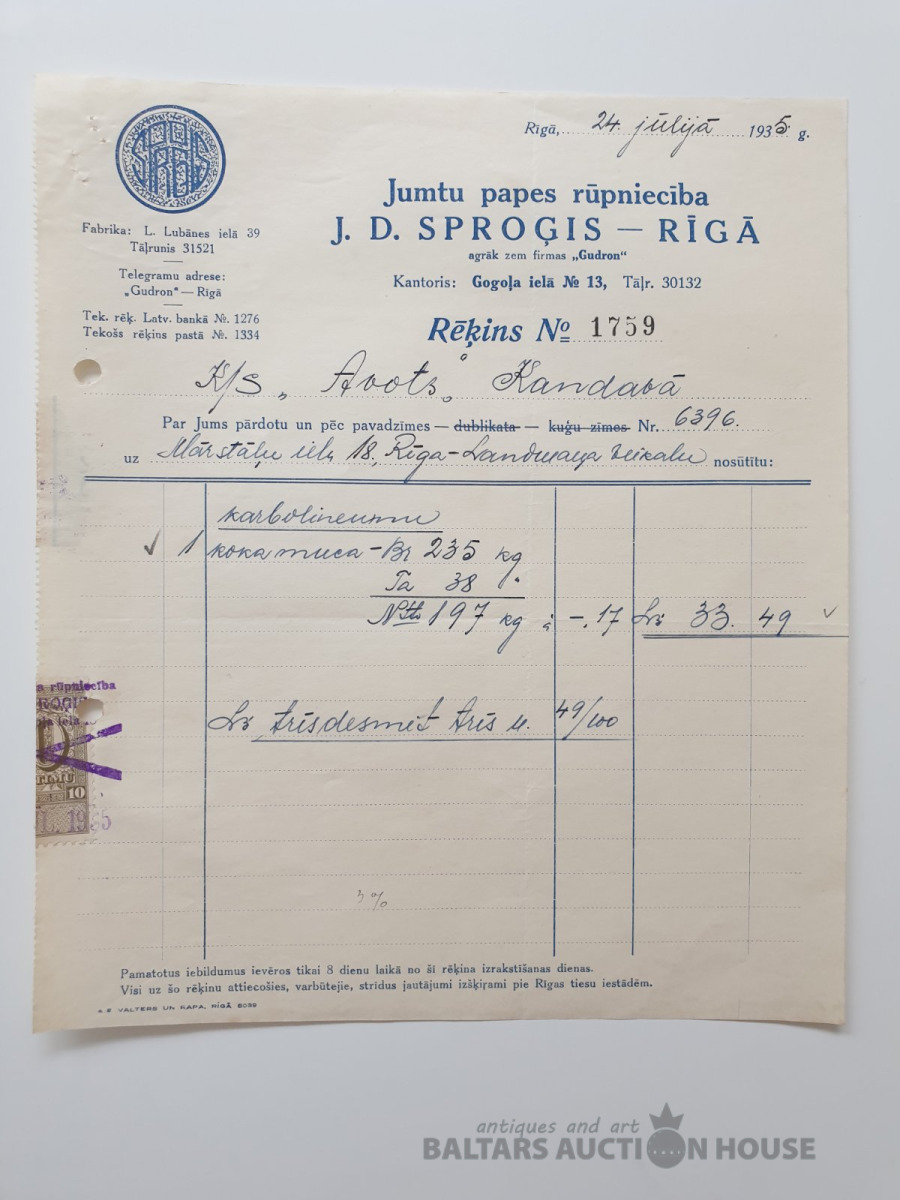 SPROĢIS
Rīgā, 24. jūlijā 1935. g.
Jumtu papes rūpniecība
J. D. SPROĢIS — RĪGĀ
agrāk zem firmas „Gudron“
Kantoris: Gogoļa ielā № 13, Tāļr. 30132
Fabrika: L. Lubānes ielā 39
Tāļrunis 31521
Telegramu adrese:
„Gudron“ — Rīgā
Tek. rēķ. Latv. bankā №. 1276
Tekošs rēķins pastā №. 1334
Rēķins № 1759
K/S „Avots“ Kandavā
Par Jums pārdotu un pēc pavadzīmes — dublikata — kuģu zīmes Nr. 6396.
uz Mārstaļu ielu 18, Rīga - veikalu nosūtītu:
karbolineumu
1 koka muca - Br 235 kg
Ta 38 "
Ntto 197 kg à -.17 Ls 33. 49
Ls trīsdesmit trīs u. 49/100
3%
a rūpniecība
10
1935
Pamatotus iebildumus ievēros tikai 8 dienu laikā no šī rēķina izrakstīšanas dienas.
Visi uz šo rēķinu attiecošies, varbūtejie, strīdus jautājumi izšķirami pie Rīgas tiesu iestādēm.
A.S. VALTERS UN RAPA, RĪGĀ 8099
antiques and art
BALTARS AUCTION HOUSE